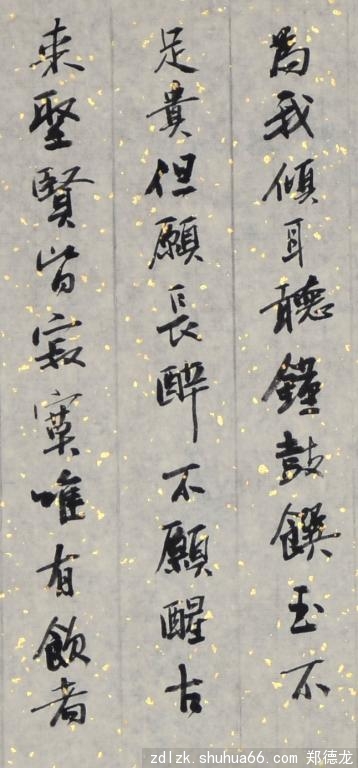 為我傾耳聽鐘鼓饌玉不
足貴但願長醉不願醒古
来聖賢皆寂寞唯有飲者
zdlzk.shuhua66.com 郑德龙